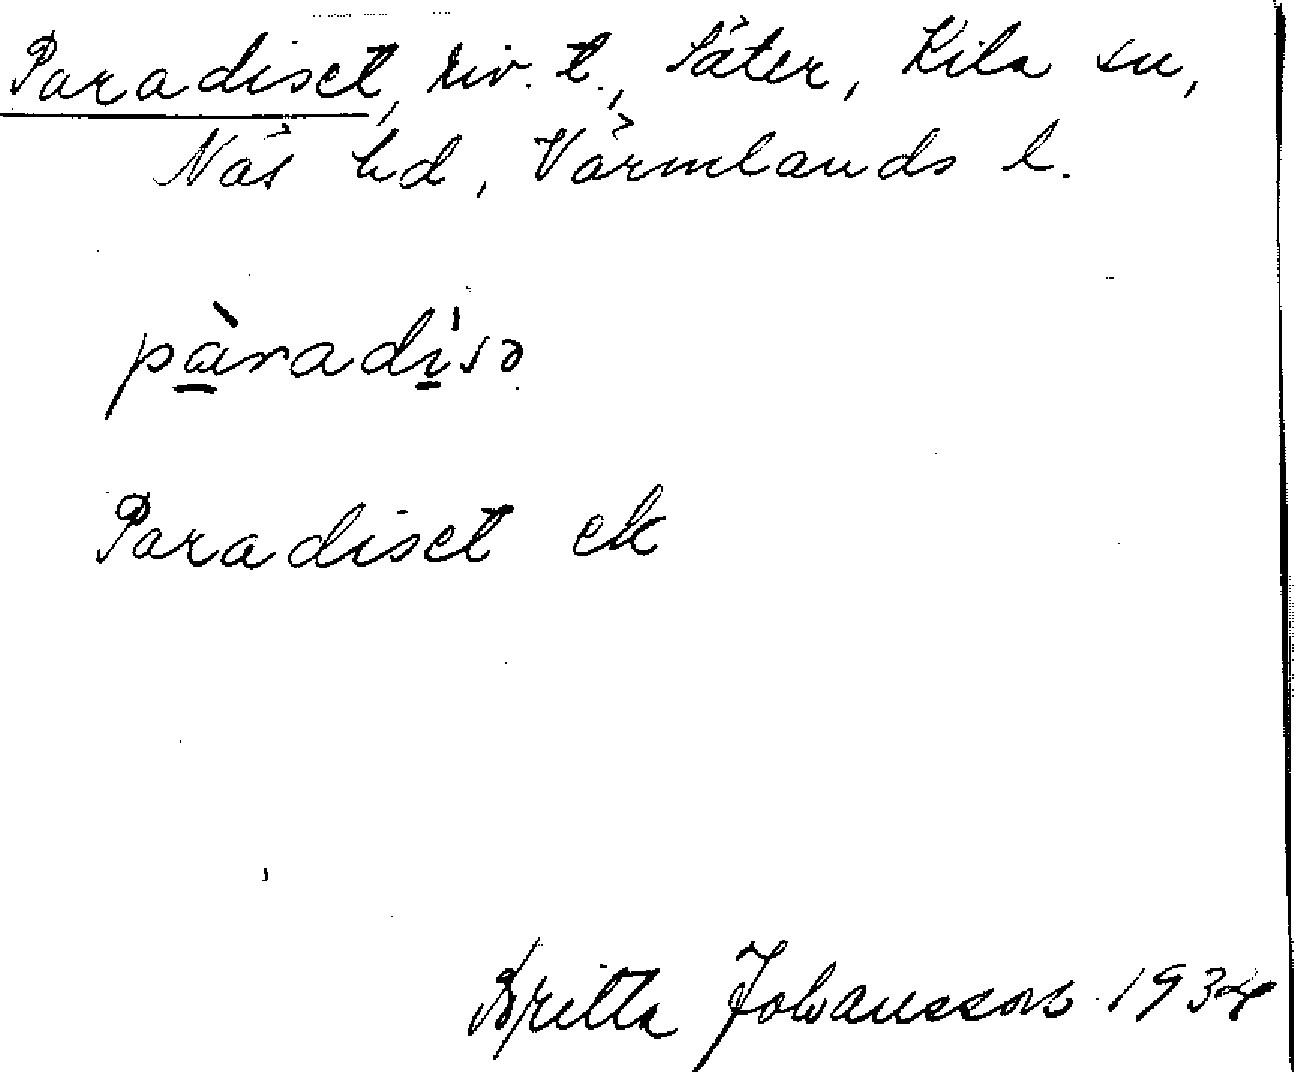 Paradiset, riv. t., Säter, Kila sn,
Näs hd, Värmlands l.
pàradísə
Paradiset ek
Britta Johansson 1934